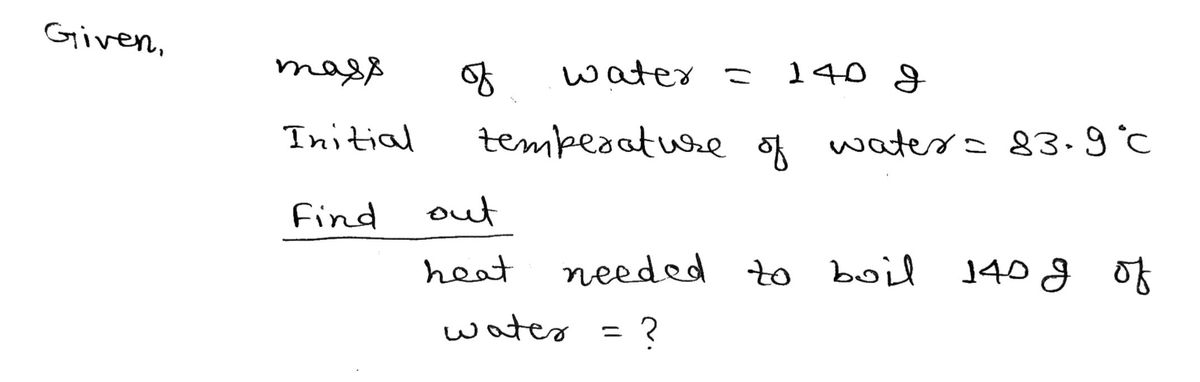 Given,
mass of water = 140 g
Initial temperature of water = 83.9°C
Find out
heat needed to boil 140 g of
water = ?